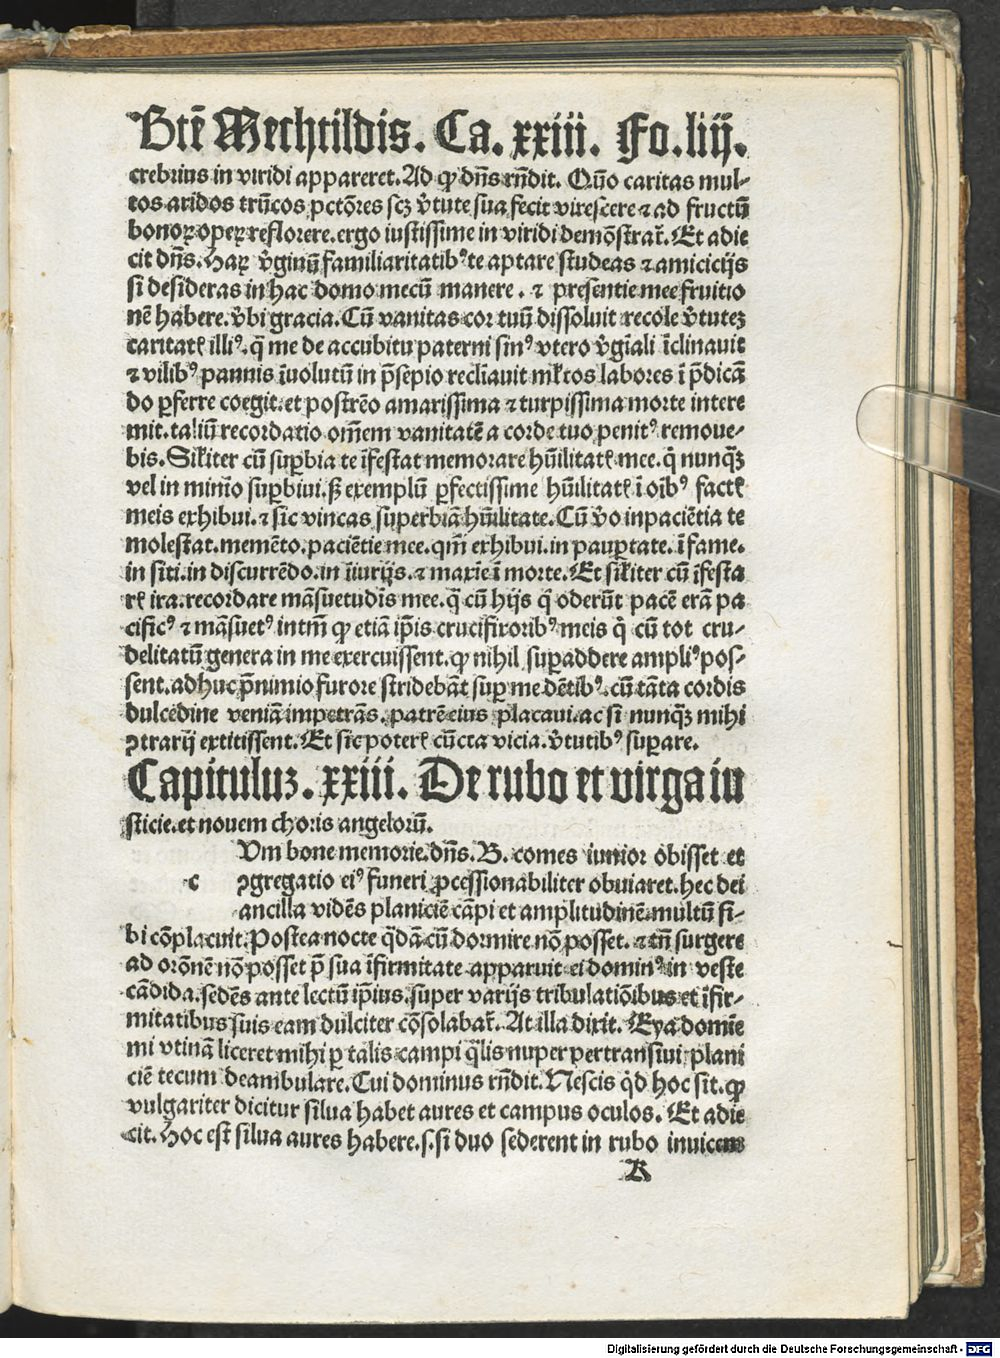 Btē Mechtildis. Ca. xxiii. Fo. liij.
crebrius in viridi appareret. Ad qꝫ dn̄s rn̄dit. Qūo caritas mul-
tos aridos trūcos pctōres scꝫ v̄tute sua fecit virescere ⁊ ad fructū
bonoꝝ opeꝝ reflorere. ergo iustissime in viridi demōstrat̄. Et adie
cit dn̄s. Haꝝ v̄ginū familiaritatibꝰ te aptare studeas ⁊ amicicijs
si desideras in hac domo mecū manere. ⁊ presentie mee fruitio
nē habere. v̄bi gracia. Cū vanitas cor tuū dissoluit recole v̄tuteꝫ
caritatꝭ illiꝰ. q̄ me de accubitu paterni sinꝰ vtero v̄giali īclinauit
⁊ vilibꝰ pannis īuolutū in p̄sepio reclīauit ml̄tos labores ī p̄dicā
do ꝑferre coegit. et postrēo amarissima ⁊ turpissima morte intere
mit. taliū recordatio om̄em vanitatē a corde tuo penitꝰ remoue-
bis. Sil̄iter cū suꝑbia te īfestat memorare hūilitatꝭ mee. q̄ nunq̄ꝫ
vel in minīo suꝑbiui. sꝫ exemplū ꝑfectissime hūilitatꝭ ī oībꝰ factꝭ
meis exhibui. ⁊ sic vincas superbiā hūilitate. Cū v̄o inpaciētia te
molestat. memēto. paciētie mee. qm̄ exhibui. in pauꝑtate. ī fame.
in siti. in discurrēdo. in īiurijs. ⁊ maxīe ī morte. Et sil̄iter cū īfesta
rꝭ ira. recordare māsuetudīs mee. q̄ cū hijs q̄ oderūt pacē erā pa
cificꝰ ⁊ māsuetꝰ intm̄ ꝙ etiā ip̄is crucifixoribꝰ meis q̄ cū tot cru-
delitatū genera in me exercuissent. ꝙ nihil suꝑaddere ampliꝰ pos-
sent. adhuc p̄ nimio furore stridebāt suꝑ me dētibꝰ. cū tāta cordis
dulcedine veniā impetrās. patrē eius placaui. ac si nunq̄ꝫ mihi
ꝯtrarij extitissent. Et sic poterꝭ cūcta vicia. v̄tutibꝰ suꝑare.
Capituluꝫ. xxiii. De rubo et virga iu
sticie. et nouem choris angelorū.
Vm bone memorie. dn̄s. B. comes iunior obisset et
c ꝯgregatio eiꝰ funeri ꝓcessionabiliter obuiaret. hec dei
ancilla vidēs planiciē cāpi et amplitudinē multū si-
bi cōplacuit. Postea nocte q̄dā cū dormire nō posset. ⁊ tn̄ surgere
ad orōnē nō posset p̄ sua īfirmitate apparuit ei dominꝰ in veste
cādida. sedēs ante lectū ip̄ius. super varijs tribulatiōibus et īfir-
mitatibus suis eam dulciter cōsolabat̄. At illa dixit. Eya domīe
mi vtinā liceret mihi ꝑ talis campi q̄lis nuper pertransiui plani
ciē tecum deambulare. Cui dominus rn̄dit. Nescis q̄d hoc sit. ꝙ
vulgariter dicitur silua habet aures et campus oculos. Et adie
cit. Hoc est silua aures habere. s. si duo sederent in rubo inuicem
K
Digitalisierung gefördert durch die Deutsche Forschungsgemeinschaft - DFG